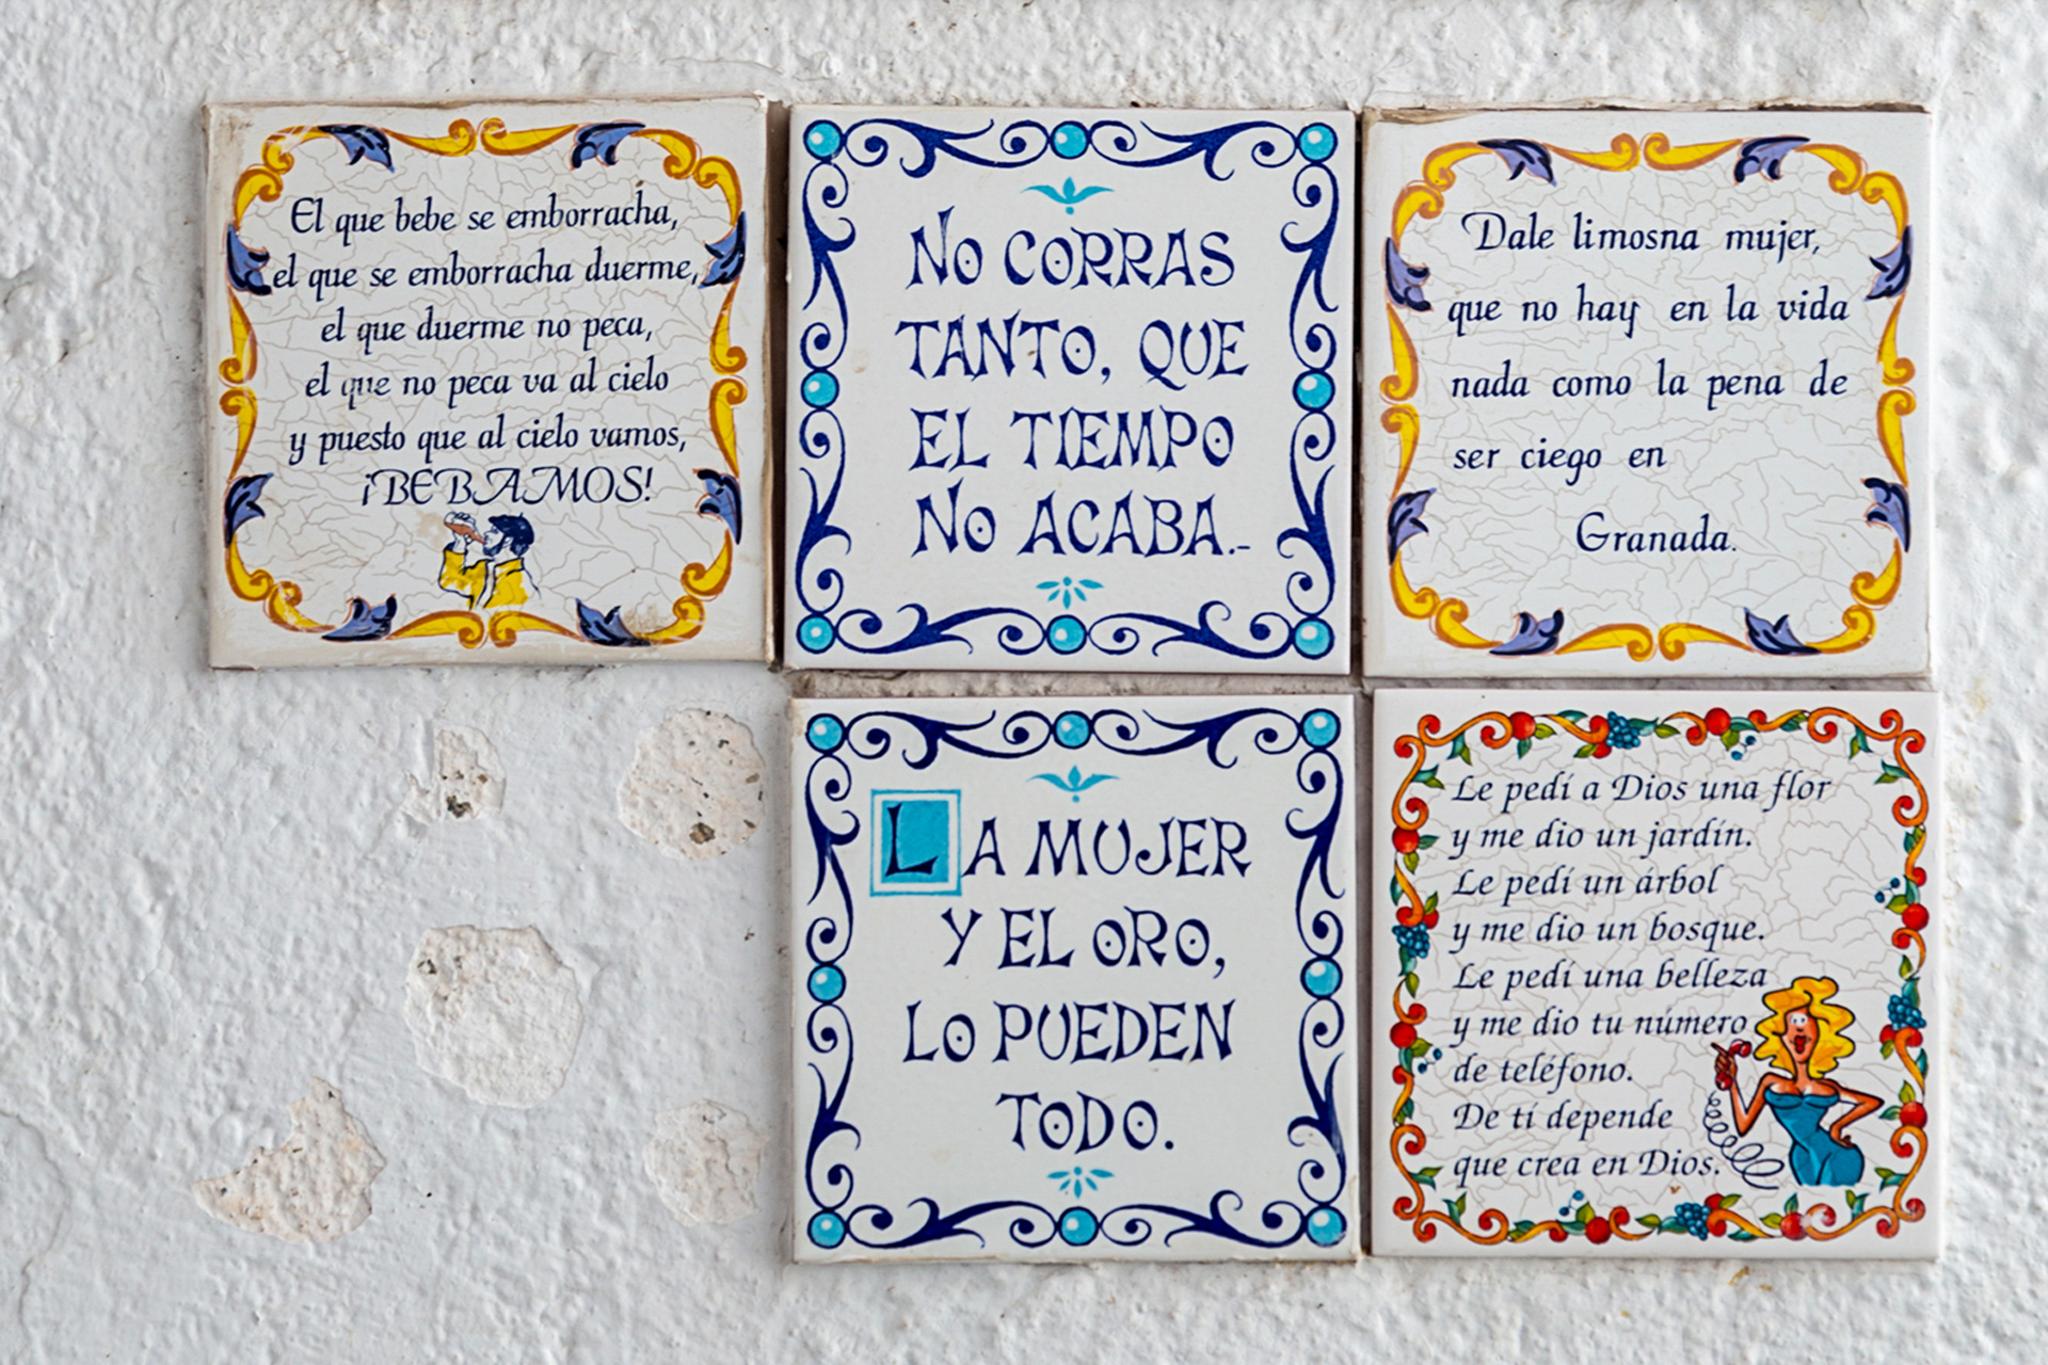 El que bebe se emborracha,
el que se emborracha duerme,
el que duerme no peca,
el que no peca va al cielo
y puesto que al cielo vamos,
¡BEBAMOS!
NO CORRAS
TANTO, QUE
EL TIEMPO
NO ACABA.-
Dale limosna mujer,
que no hay en la vida
nada como la pena de
ser ciego en
Granada.
LA MUJER
Y EL ORO,
LO PUEDEN
TODO.
Le pedí a Dios una flor
y me dio un jardín.
Le pedí un árbol
y me dio un bosque.
Le pedí una belleza
y me dio tu número
de teléfono.
De tí depende
que crea en Dios.